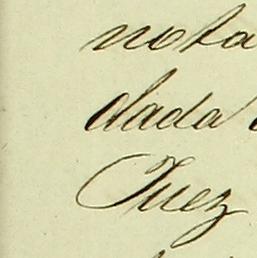 nota
dada
Juez